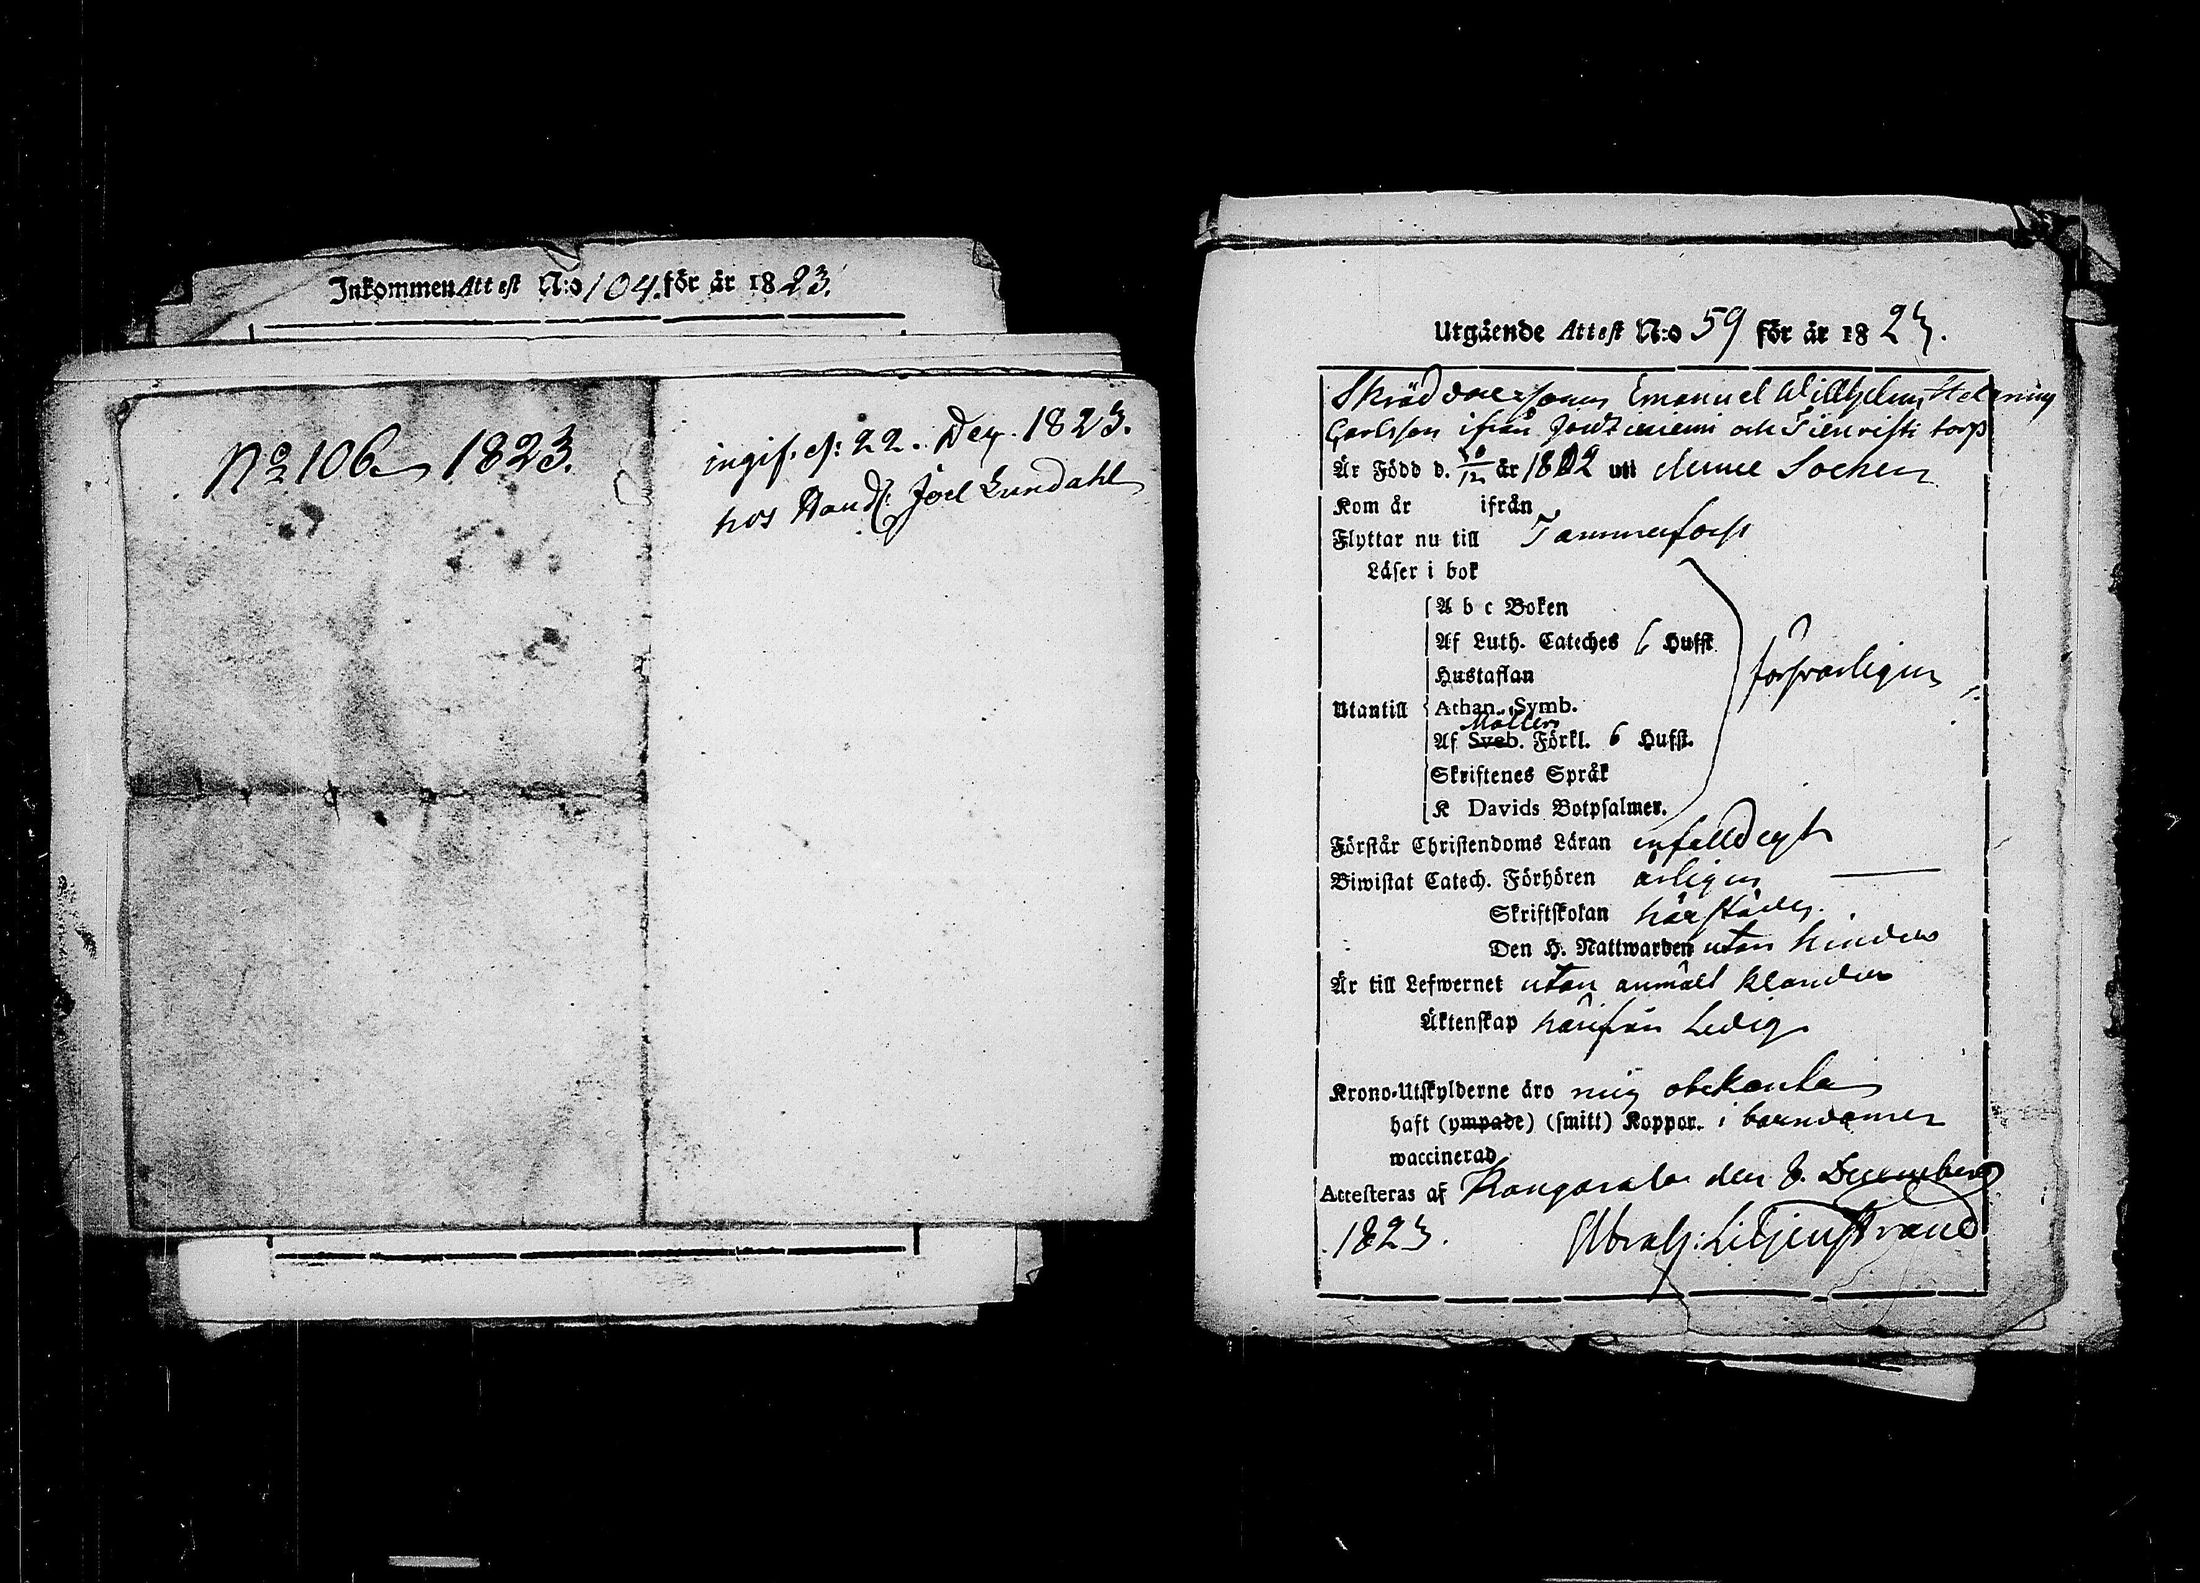 Inkommen Attest N:o 104. för år 1823.
No 106 1823.
ingif. d: 22. Dec. 1823.
hos Handl: Joel Lundahl
Utgående Attest N:o 59 för år 1823.
Skräddaresonen Emanuel Willhelm
Carlsson ifrån och torp
Är Född d. år 1802 uti denne Sochen
Kom år ifrån
Flyttar nu till Tammerfors
Läser i bok
A b c Boken
Af Luth. Cateches 6 Hufst.
Hustaflan
försvarligen
Utantill Athan. Symb.
Möllers
Af Sveb. Förkl. 6 Hufst.
Skriftenes Språk
K Davids Botpsalmer.
Förstår Christendoms Läran enfalldigt
Biwistat Catech. Förhören årligen
Skriftskolan härstädes.
Den H. Nattwarden utan hinder
Är till Lefwernet utan anmält klander
Äktenskap härifrån Ledig
Krono-Utskylderne äro mig obekanta
haft (ympade) (smitt) Koppor. i barndomen
waccinerad
Attesteras af Kangasala den 8. December
1823. Abrah: Liljenstrand